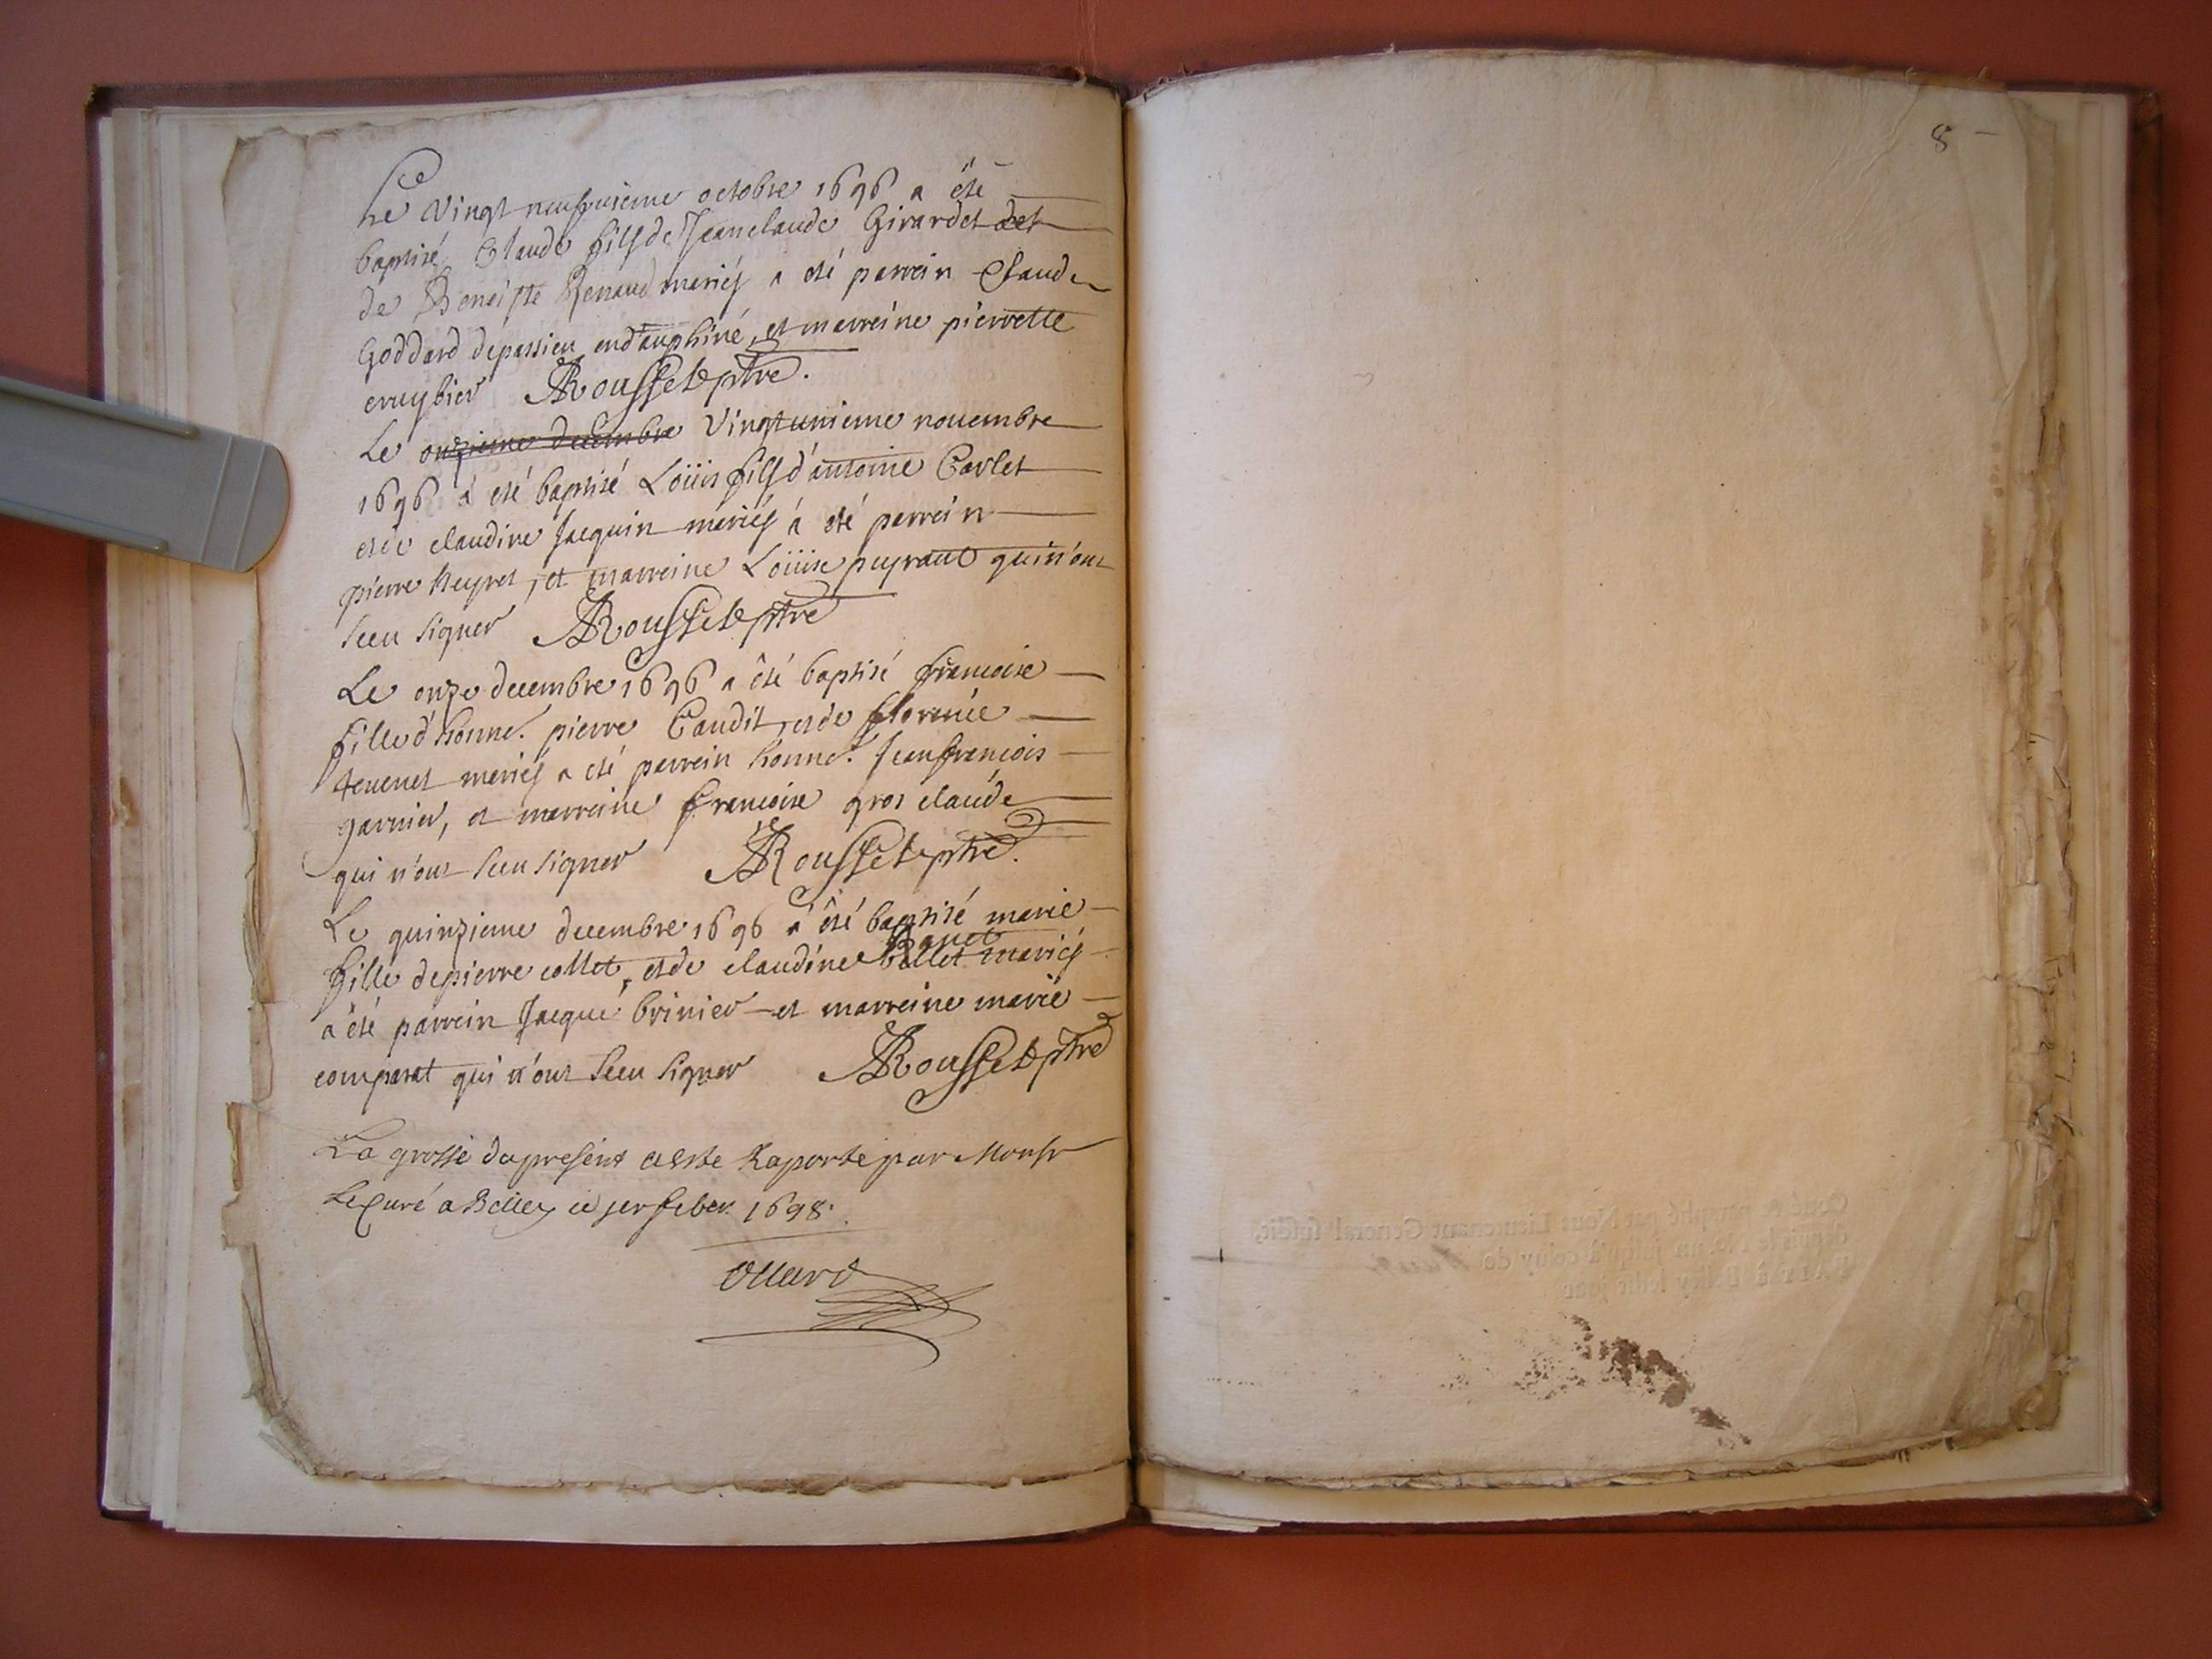 Le Vingt neufuieme octobre 1696 a été
baptisé Claude fils de Jeanclaude Girardet et
de Benoiste Renaud mariés a eté parrein Claude
Goddard depassieu endauphiné, et marreine pierrette
Rousset ptre.
Le onzieme decembre Vingtunieme nouembre
1696 a eté baptisé Loüis fils d'antoine Carlet
et de claudine Jacquin mariés a eté parrein
pierre Reyret, et marreine Loüise peyraud qui n'ont
sceu signer Rousset ptre
Le onze decembre 1696 a êté baptisé francoise
fille d'honne. pierre Caudit, et de florence
teuenet mariés a eté parrein honne. Jeanfrancois
garnier, et marreine francoise gros claude
qui n'ont sceu signer Rousset ptre.
Le quinzieme decembre 1696 a êté baptisé marie
fille depierre collet, et de claudine mariés
a êté parrein Jacque brinier et marreine marie
comparat qui n'ont sceu signer Rousset ptre
La grosse du present a esté Raporté par Monsr
Le Curé a Belley ce jer feber. 1698.
Ollard
8